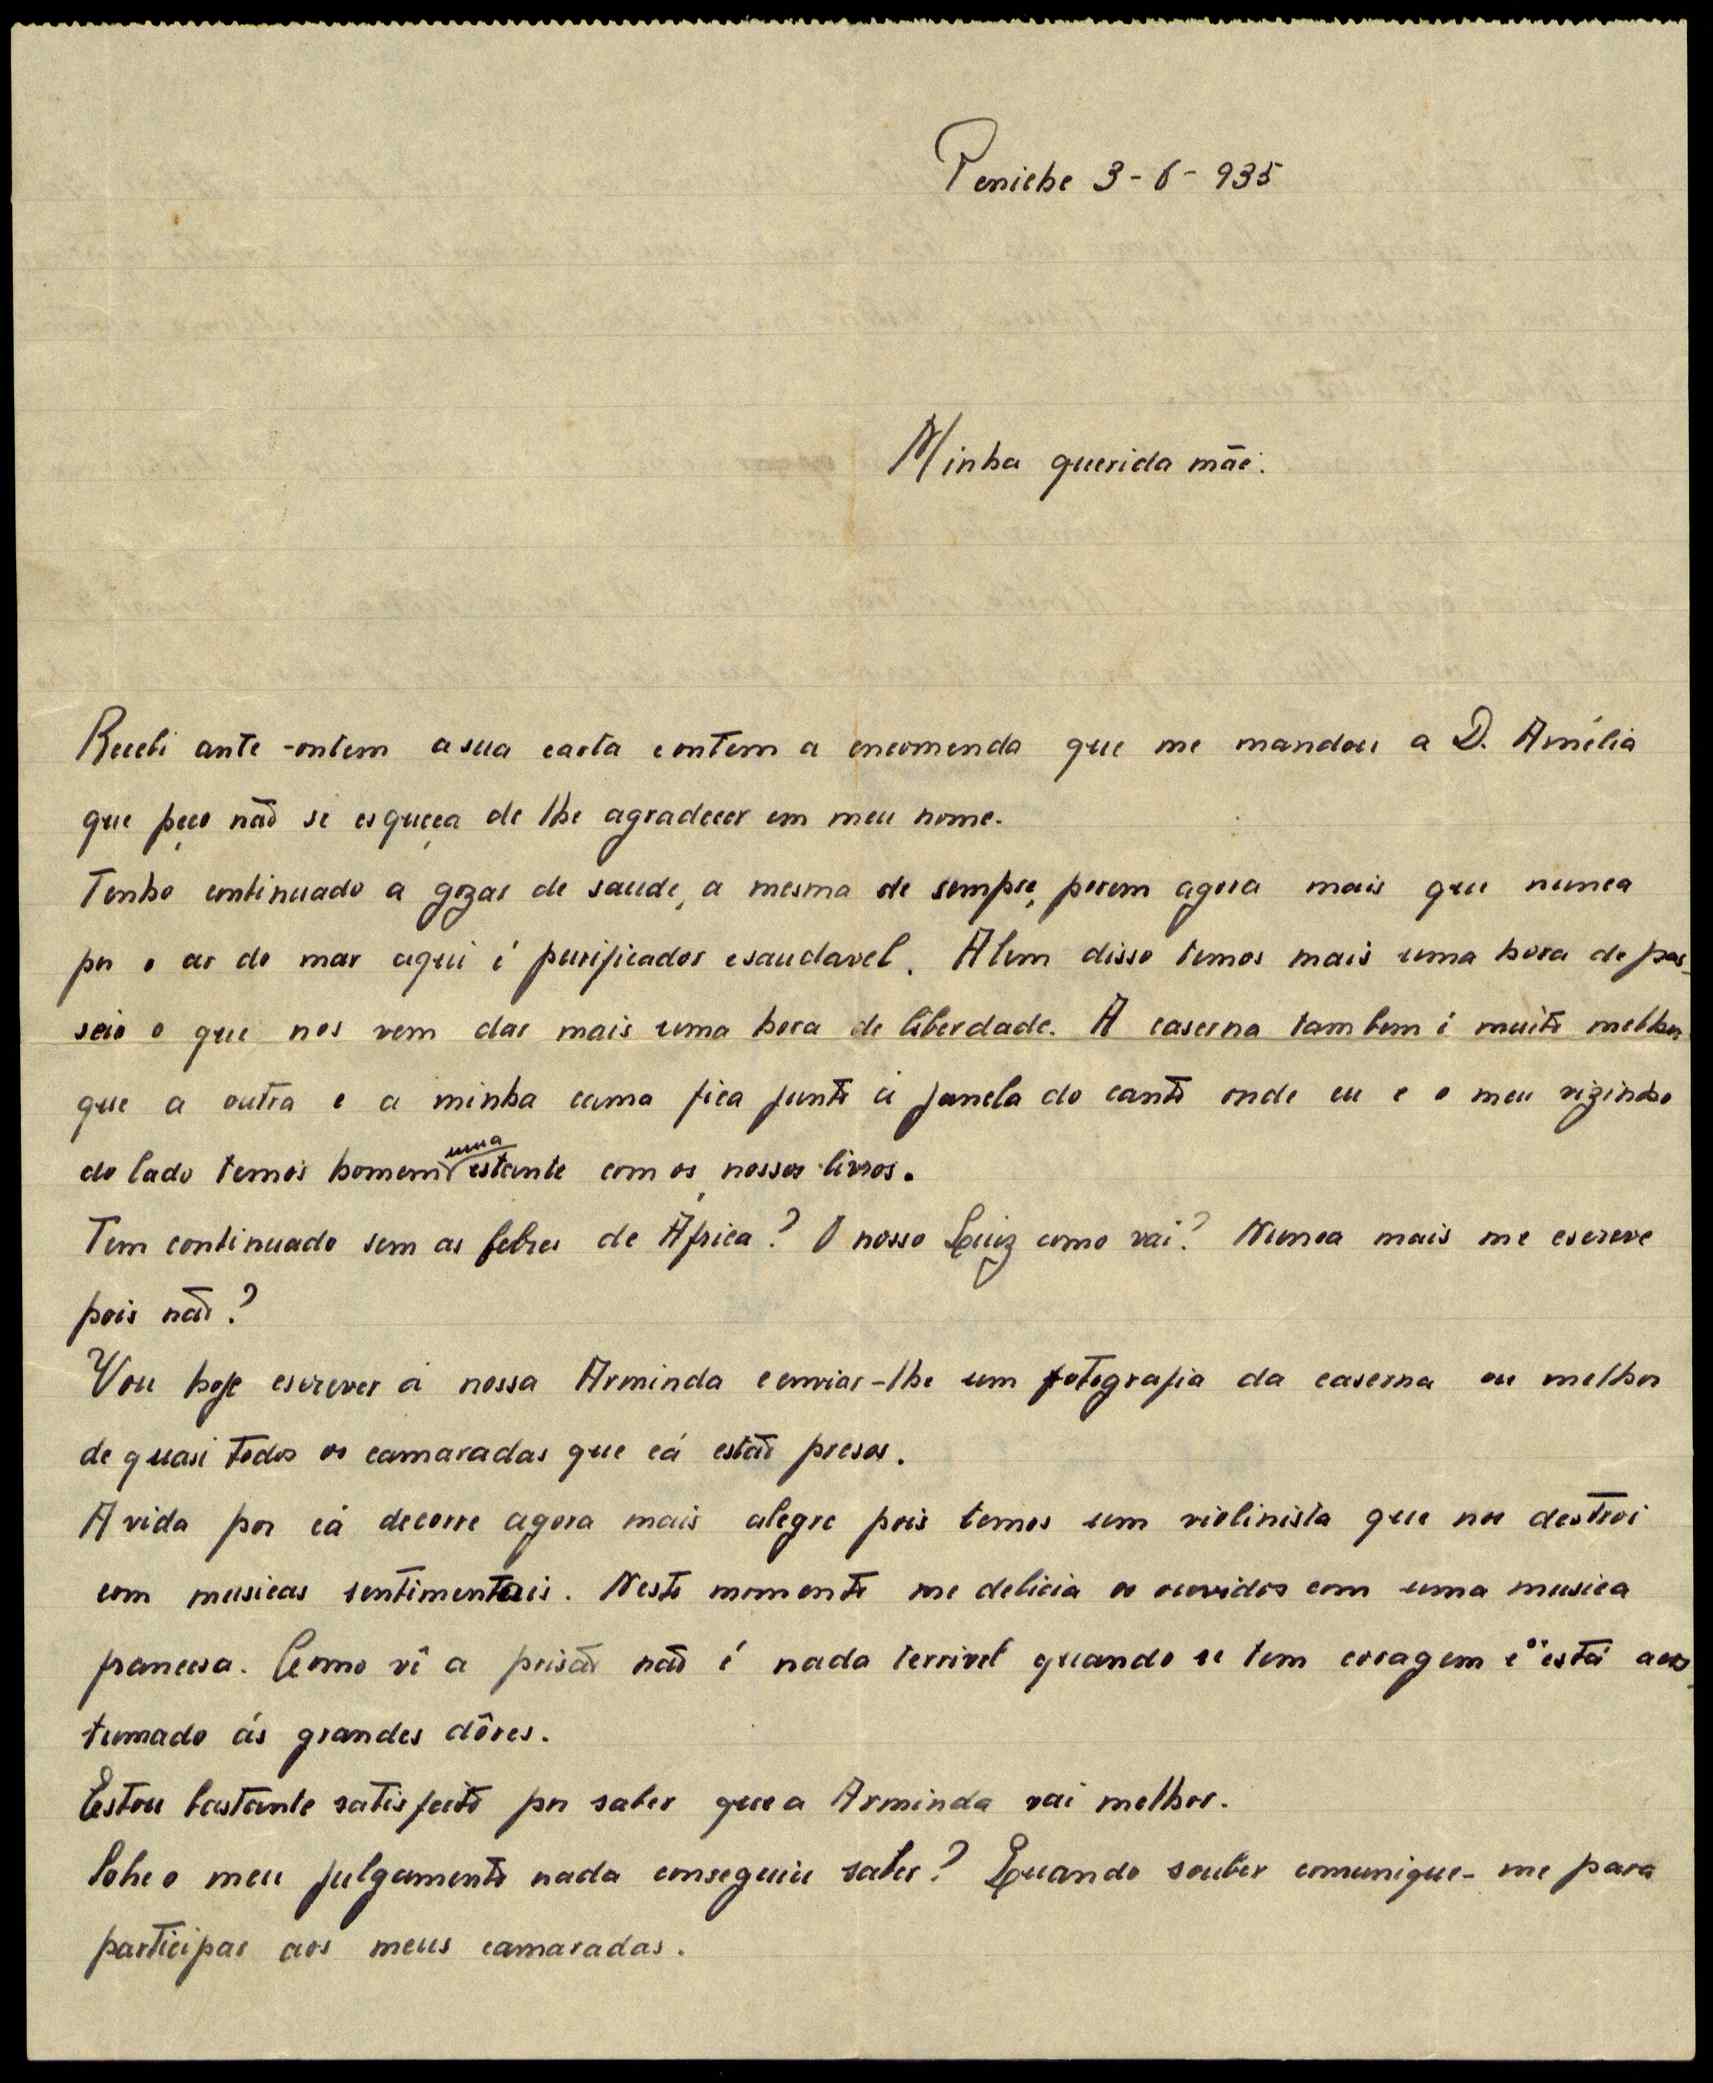 Peniche 3-6-935
Minha querida mãe:
Recebi ante-ontem a sua carta e ontem a encomenda que me mandou a D. Amélia
que peço não se esqueça de lhe agradecer em meu nome.
Tenho continuado a gozar de saude, a mesma de sempre, porem agora mais que nunca
por o ar do mar aqui é purificador e saudavel. Alem disso temos mais uma hora de pas-
seio o que nos vem dar mais uma hora de liberdade. A caserna tambem é muito melhor
que a outra e a minha cama fica junto á janela do canto onde eu e o meu vizinho
do lado temos uma estante com os nossos livros.
Tem continuado sem as febres de África? O nosso Luiz como vai? Nunca mais me escreve
pois não?
Vou hoje escrever á nossa Arminda e enviar-lhe um fotografia da caserna ou melhor
de quasi todos os camaradas que cá estão presos.
A vida por cá decorre agora mais alegre pois temos um violinista que nos destroi
com musicas sentimentais. Neste momento me delicia os ouvidos com uma musica
francesa. Como vê a prisão não é nada terrivel quando se tem coragem e está acos-
tumado ás grandes dôres.
Estou bastante satisfeito por saber que a Arminda vai melhor.
Sobre o meu julgamento nada conseguiu saber? Quando souber comunique-me para
participar aos meus camaradas.